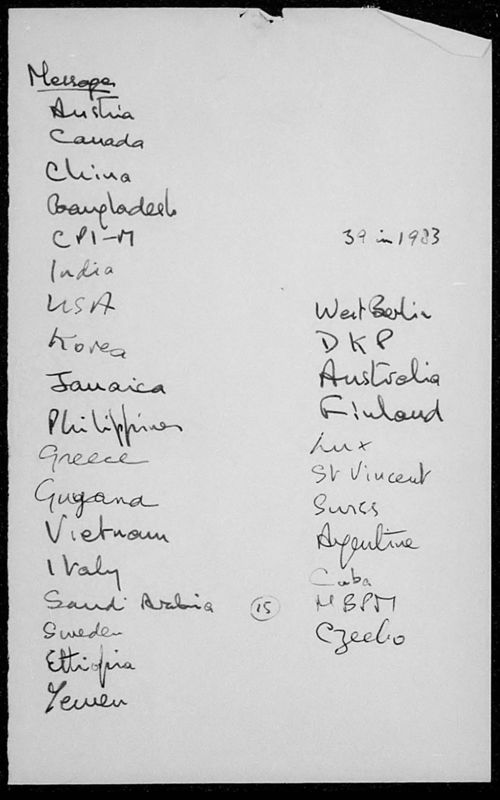 Messages
Austria
Canada
China
Bangladesh
CPI-M
India
USA
Korea
Jamaica
Philippines
Greece
Guyana
Vietnam
Italy
Saudi Arabia
Sweden
Ethiopia
Yemen
15
39 in 1983
West Berlin
DKP
Australia
Finland
Lux
St Vincent
Swiss
Argentine
Cuba
MBPM
Czecho